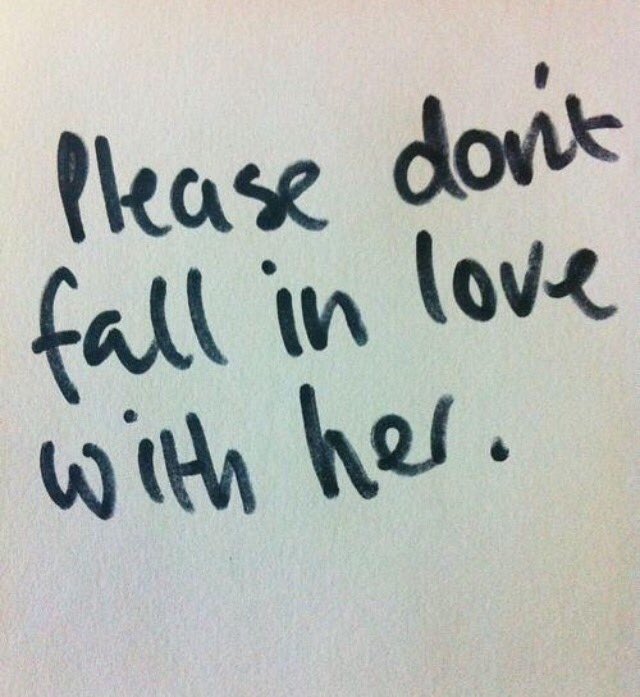 Please don't
fall in love
with her.